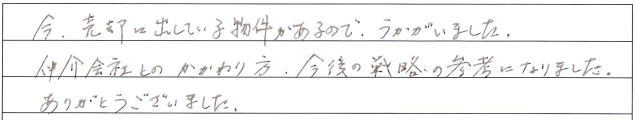 今、売却に出している物件があるので、うかがいました。
仲介会社とのかかわり方、今後の戦略の参考になりました。
ありがとうございました。